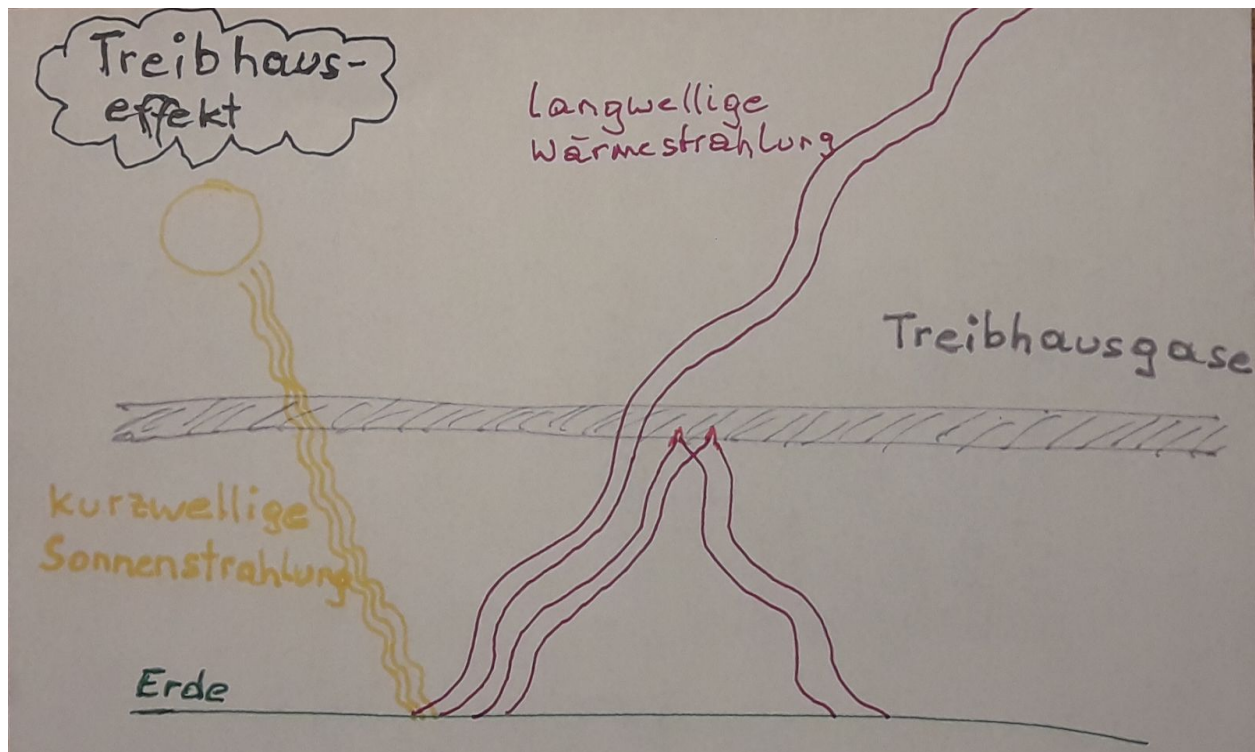 Treibhaus-
effekt
Langwellige
Wärmestrahlung
Treibhausgase
kurzwellige
Sonnenstrahlung
Erde